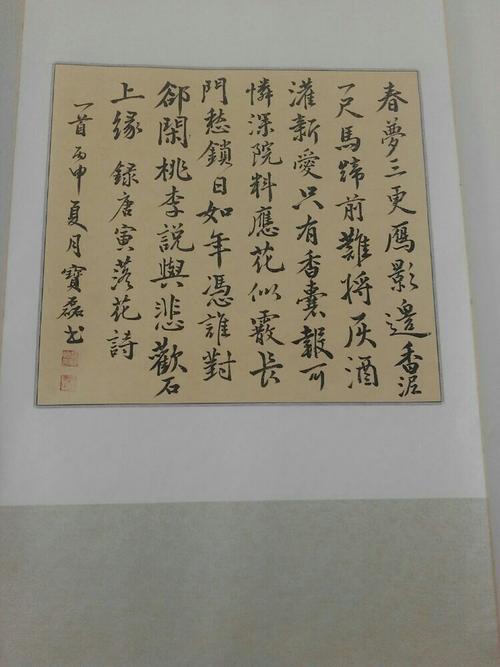 春夢三更鴈影邊香泥
一尺馬蹄前難將灰酒
灌新愛只有香囊報可
憐深院料應花似霰長
門愁鎖日如年憑誰對
郤閑桃李說與悲歡石
上緣 錄唐寅落花詩
一首 丙申夏月寶磊书